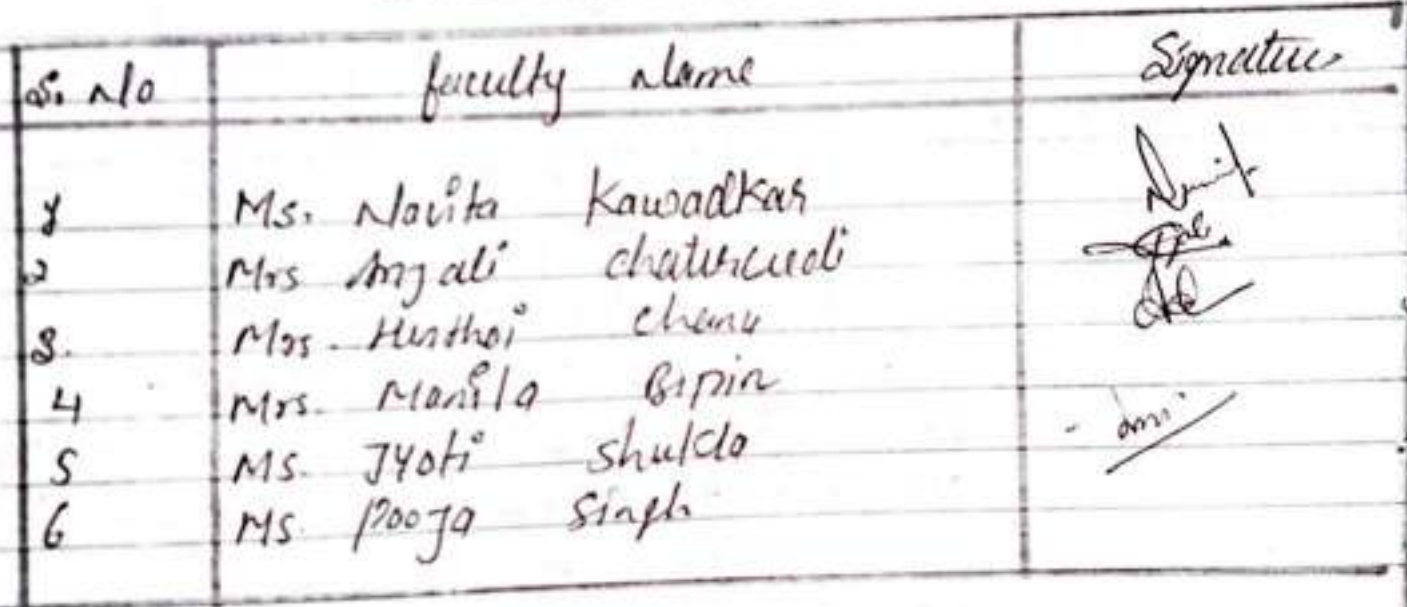 S. No faculty Name Signature
1 Ms. Navita Kawadkar
2 Mrs Anjali Chaturvedi
3. Mrs. Henthoi Chanu
4 Mrs. Manila Bipin
5 Ms. Jyoti Shukla
6 Ms. Pooja Singh